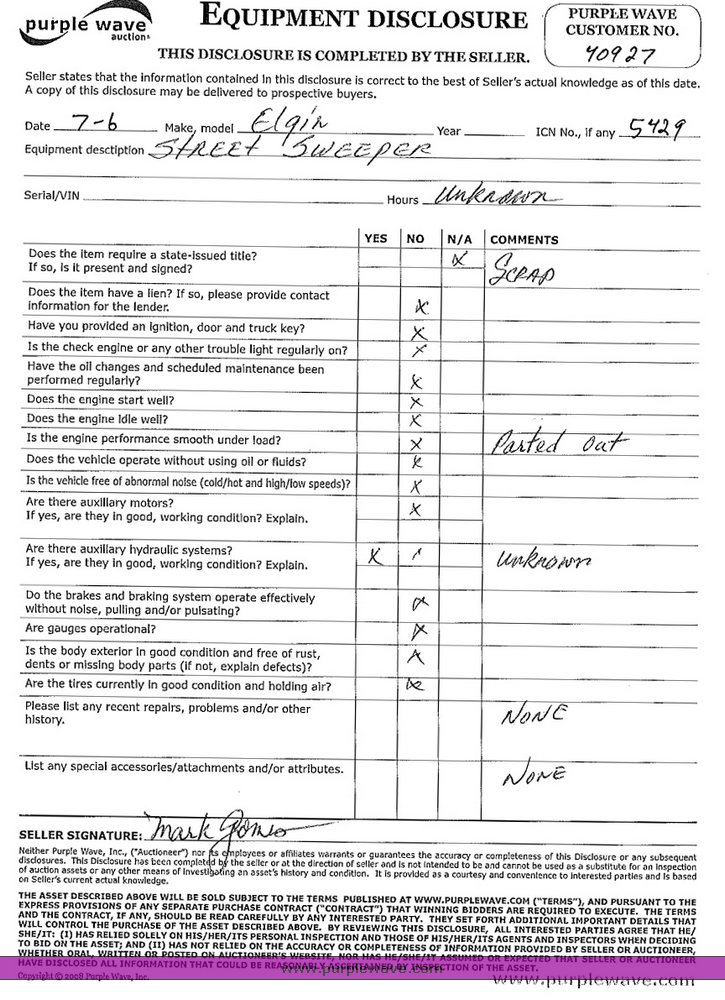 purple wave
auction®
EQUIPMENT DISCLOSURE
THIS DISCLOSURE IS COMPLETED BY THE SELLER.
PURPLE WAVE
CUSTOMER NO.
40927
Seller states that the information contained in this disclosure is correct to the best of Seller's actual knowledge as of this date.
A copy of this disclosure may be delivered to prospective buyers.
Date 7-6 Make, model Elgin Year ICN No., if any 5429
Equipment desctiption STREET SWEEPER
Serial/VIN Hours Unknown
YES NO N/A COMMENTS
Does the item require a state-issued title? X
If so, is it present and signed? SCRAP
Does the item have a lien? If so, please provide contact
information for the lender. X
Have you provided an ignition, door and truck key? X
Is the check engine or any other trouble light regularly on? X
Have the oil changes and scheduled maintenance been
performed regularly? X
Does the engine start well? X
Does the engine idle well? X
Is the engine performance smooth under load? X Parted out
Does the vehicle operate without using oil or fluids? X
Is the vehicle free of abnormal noise (cold/hot and high/low speeds)? X
Are there auxiliary motors? X
If yes, are they in good, working condition? Explain.
Are there auxiliary hydraulic systems? X
If yes, are they in good, working condition? Explain. unknown
Do the brakes and braking system operate effectively
without noise, pulling and/or pulsating? X
Are gauges operational? X
Is the body exterior in good condition and free of rust,
dents or missing body parts (if not, explain defects)? X
Are the tires currently in good condition and holding air? X
Please list any recent repairs, problems and/or other
history. NONE
List any special accessories/attachments and/or attributes. NONE
SELLER SIGNATURE: Mark
Neither Purple Wave, Inc., ("Auctioneer") nor its employees or affiliates warrants or guarantees the accuracy or completeness of this Disclosure or any subsequent
disclosures. This Disclosure has been completed by the seller or at the direction of seller and is not intended to be and cannot be used as a substitute for an inspection
of auction assets or any other means of investigating an asset's history and condition. It is provided as a courtesy and convenience to interested parties and is based
on Seller's current actual knowledge.
THE ASSET DESCRIBED ABOVE WILL BE SOLD SUBJECT TO THE TERMS PUBLISHED AT WWW.PURPLEWAVE.COM ("TERMS"), AND PURSUANT TO THE
EXPRESS PROVISIONS OF ANY SEPARATE PURCHASE CONTRACT ("CONTRACT") THAT WINNING BIDDERS ARE REQUIRED TO EXECUTE. THE TERMS
AND THE CONTRACT, IF ANY, SHOULD BE READ CAREFULLY BY ANY INTERESTED PARTY. THEY SET FORTH ADDITIONAL IMPORTANT DETAILS THAT
WILL CONTROL THE PURCHASE OF THE ASSET DESCRIBED ABOVE. BY REVIEWING THIS DISCLOSURE, ALL INTERESTED PARTIES AGREE THAT HE/
SHE/IT: (I) HAS RELIED SOLELY ON HIS/HER/ITS PERSONAL INSPECTION AND THOSE OF HIS/HER/ITS AGENTS AND INSPECTORS WHEN DECIDING
TO BID ON THE ASSET; AND (II) HAS NOT RELIED ON THE ACCURACY OR COMPLETENESS OF INFORMATION PROVIDED BY SELLER OR AUCTIONEER,
WHETHER ORAL, WRITTEN OR POSTED ON AUCTIONEER'S WEBSITE, NOR HAS HE/SHE/IT ASSUMED OR EXPECTED THAT SELLER OR AUCTIONEER
HAVE DISCLOSED ALL INFORMATION THAT COULD BE REASONABLY ASCERTAINED BY INSPECTION OF THE ASSET.
Copyright © 2008 Purple Wave, Inc. www.purplewave.com www.purplewave.com